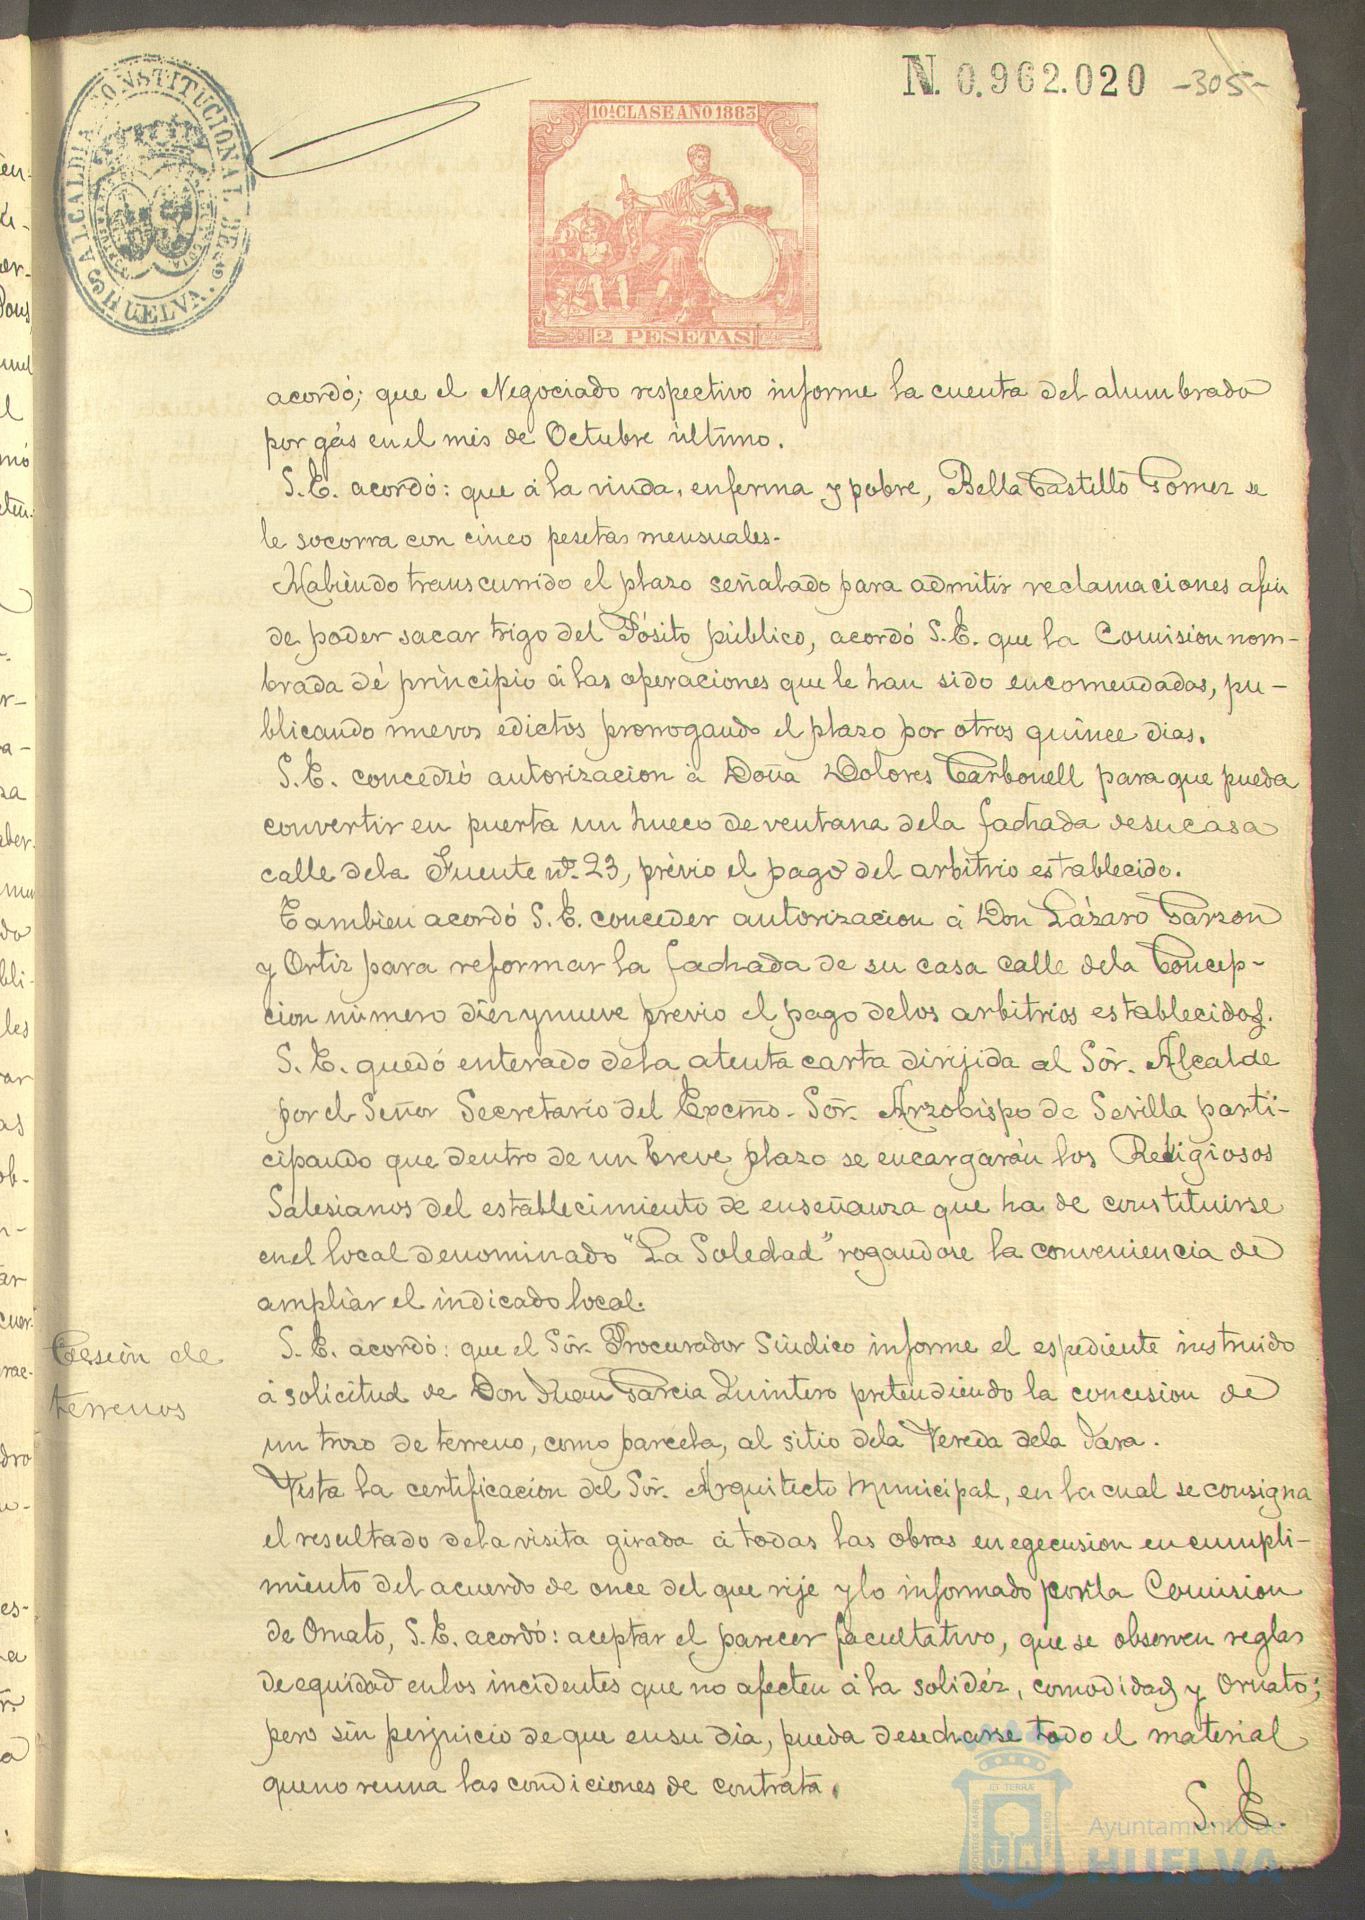 N. 0.962.020 -305-
ALCALDIA CONSTITUCIONAL DE HUELVA.
10ª CLASE AÑO 1883
2 PESETAS
acordó; que el Negociado respectivo informe la cuenta del alumbrado
por gás en el mes de Octubre último.
S.E. acordó: que á la viuda, enferma y pobre, Bella Castillo Gomez se
le socorra con cinco pesetas mensuales.
Habiendo transcurrido el plazo señalado para admitir reclamaciones afin
de poder sacar trigo del Pósito público, acordó S.E. que la Comision nom-
brada dé principio á las operaciones que le han sido encomendadas, pu-
blicando nuevos edictos prorrogando el plazo por otros quince dias.
S.E. concedió autorizacion á Doña Dolores Carbonell para que pueda
convertir en puerta un hueco de ventana dela fachada desu casa
calle dela Fuente nº 23, prévio el pago del arbitrio establecido.
Tambien acordó S.E. conceder autorizacion á Don Lázaro Garzon
y Ortiz para reformar la fachada de su casa calle dela Concep-
cion número diez y nueve previo el pago delos arbitrios establecidos.
S.E. quedó enterado dela atenta carta dirijida al Sór. Alcalde
por el Señor Secretario del Excmo. Sór. Arzobispo de Sevilla parti-
cipando que dentro de un breve plazo se encargarán los Religiosos
Salesianos del establecimiento de enseñanza que ha de constituirse
en el local denominado "La Soledad" rogandose la conveniencia de
ampliar el indicado local.
Cesión de
terrenos
S.E. acordó: que el Sór. Procurador Síndico informe el espediente instruido
á solicitud de Don Juan Garcia Quintero pretendiendo la concesion de
un trozo de terreno, como parcela, al sitio dela Vereda dela Jara.
Vista la certificacion del Sór. Arquitecto Municipal, en la cual se consigna
el resultado dela visita girada á todas las obras en egecusion en cumpli-
miento del acuerdo de once del que rije y lo informado por la Comision
de Ornato, S.E. acordó: aceptar el parecer facultativo, que se observen reglas
de equidad en los incidentes que no afecten á la solidéz, comodidad y Ornato;
pero sin perjuicio de que en su dia, pueda desecharse todo el material
que no reuna las condiciones de contrata.
S. E.
Ayuntamiento de
HUELVA